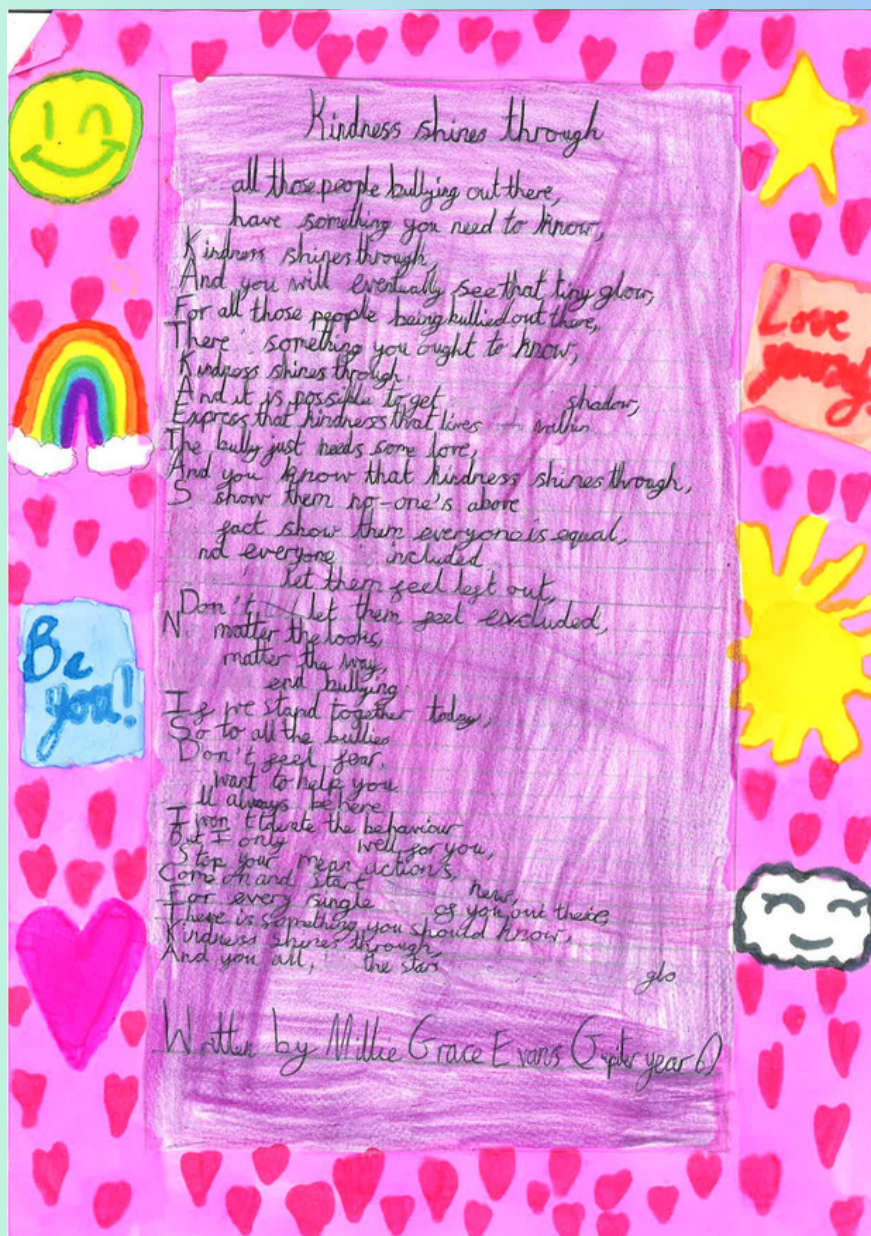 Kindness shines through
all those people bullying out there,
have something you need to know,
Kindness shines through,
And you will eventually see that tiny glow,
For all those people being bullied out there,
There something you ought to know,
Kindness shines through.
And it is possible to get shadow,
Express that kindness that lives within
The bully just needs some love,
And you know that kindness shines through,
S show them no-one's above
fact show them everyone is equal,
nd everyone included
let them feel left out,
Don't let them feel excluded,
N matter the looks,
matter the way,
end bullying
If we stand together today,
So to all the bullies
Don't feel fear,
want to help you
ll always be here
I won't tolerate the behaviour
But I only well for you,
Stop your mean actions,
Come on and start new,
For every single of you out there,
There is something you should know,
Kindness shines through,
And you all, the stars glo
Written by Millie Grace Evans (Jupiter year 6)
Be you!
Love yourself